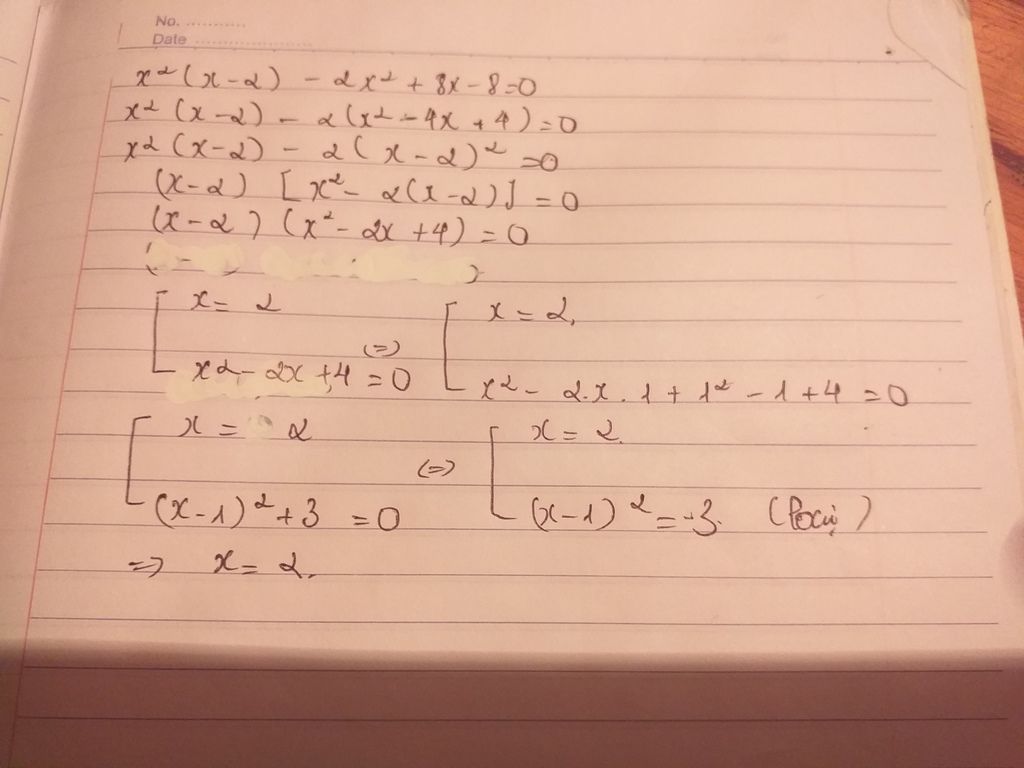 No. ............
Date ........................
x² (x-2) - 2x² + 8x - 8 = 0
x² (x-2) - 2(x² - 4x + 4) = 0
x² (x-2) - 2(x-2)² = 0
(x-2) [x² - 2(x-2)] = 0
(x-2) (x² - 2x + 4) = 0
[ x = 2 [ x = 2,
x² - 2x + 4 = 0 (=) x² - 2.x.1 + 1² - 1 + 4 = 0
[ x = 2 (=) [ x = 2.
(x-1)² + 3 = 0 (x-1)² = -3.
=> x = 2.